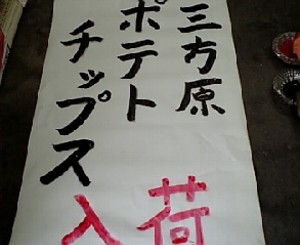 三方原
ポテト
チップス
入荷